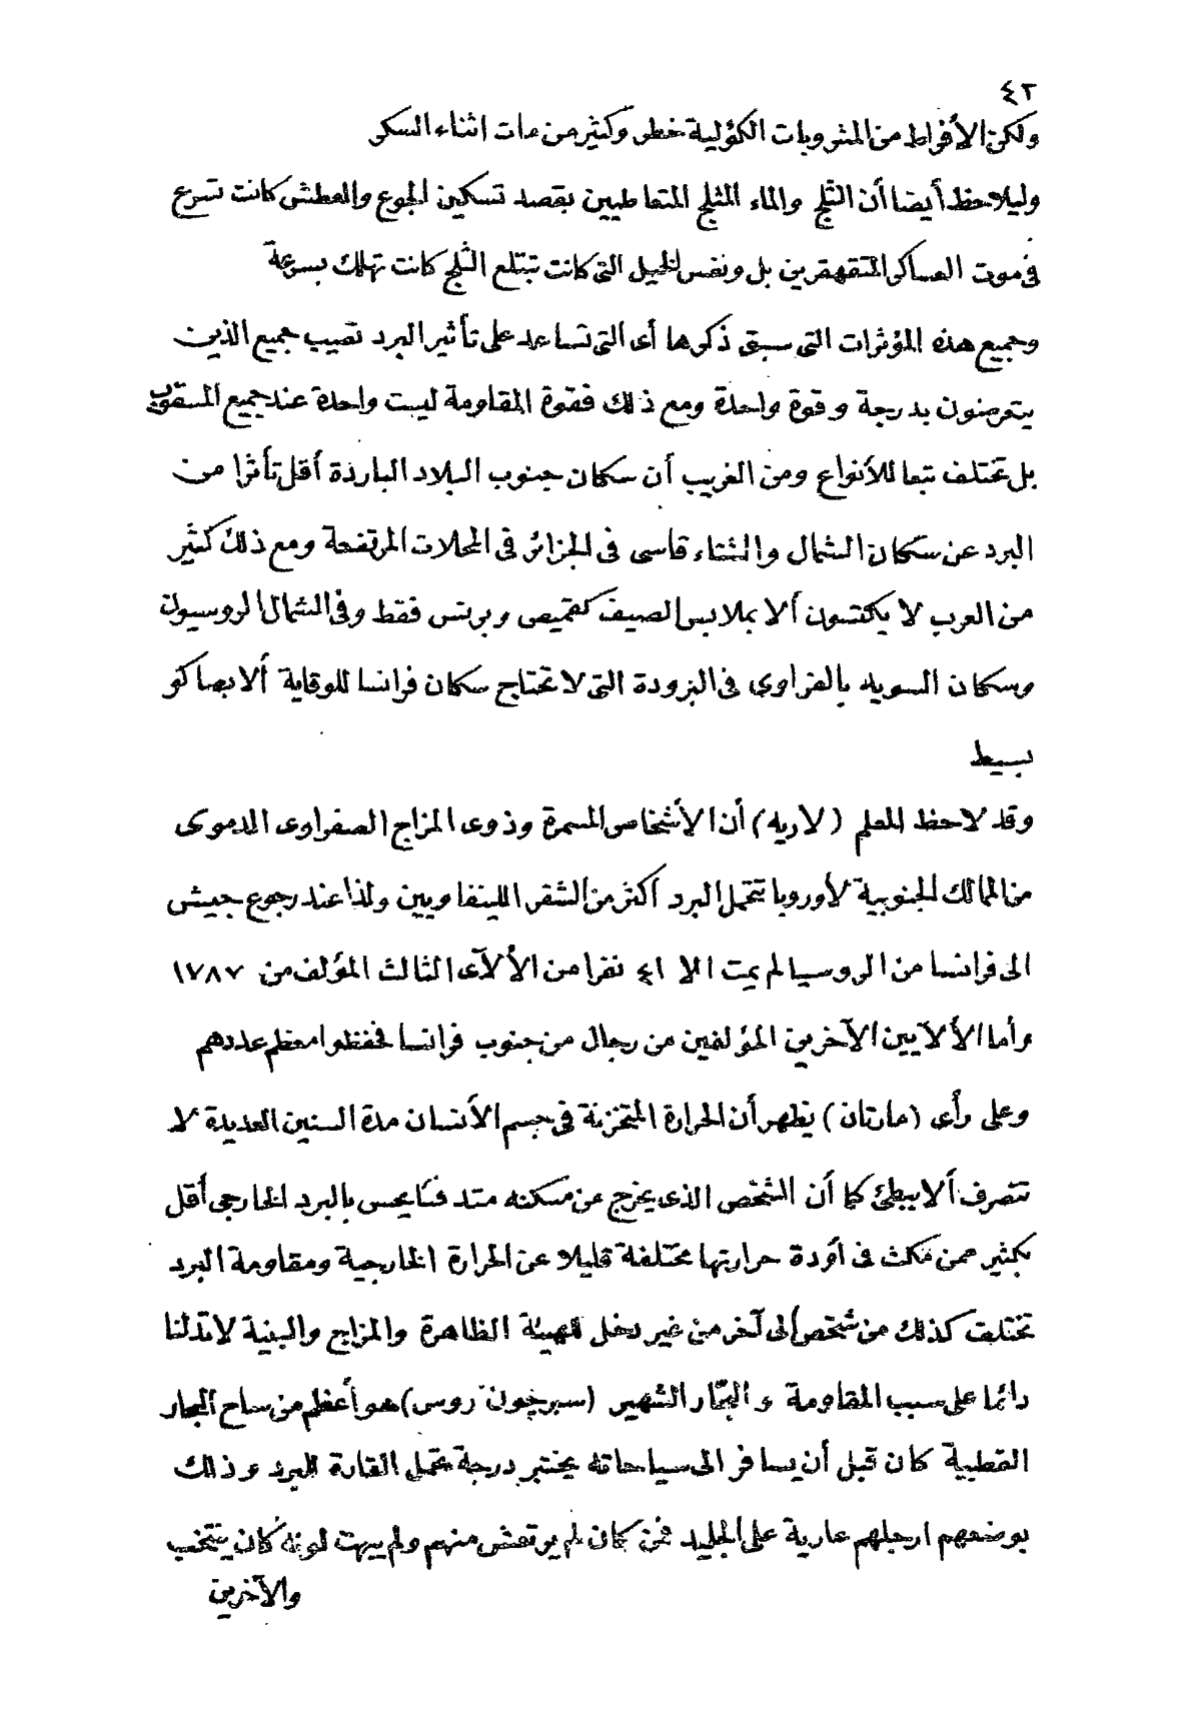 ٤٢
ولكن الأفراط من المشروبات الكؤلية خطر وكثير من مات اثناء السكر
وليلاحظ أيضا أن الثلج والماء المثلج المتعاطيين بقصد تسكين الجوع والعطش كانت تسرع
فى موت العساكر المتقهقرين بل ونفس الخيل التى كانت تبتلع الثلج كانت تهلك بسرعة
وجميع هذه المؤثرات التى سبق ذكرها أى التى تساعد على تأثير البرد تصيب جميع الذين
يتعرضون بدرجة وقوة واحدة ومع ذلك فقوة المقاومة ليست واحدة عند جميع
بل تختلف تبعا للأنواع ومن الغريب أن سكان جنوب البلاد الباردة أقل تأثرا من
البرد عن سكان الشمال والشتاء قاسى فى الجزائر فى المحلات المرتفعة ومع ذلك كثير
من العرب لا يكتسون ألا بملابس الصيف كقميص وبرنس فقط وفى الشمال الروسيون
وسكان السويد بالفراوى فى البرودة التى لا تحتاج سكان فرانسا للوقاية ألا بصاكو
بسيط
وقد لاحظ المعلم (لاريه) أن الأشخاص المسمرة وذوى المزاج الصفراوى الدموى
من الممالك الجنوبية لأوروبا تتحمل البرد أكثر من الشقر اللينفاويين ولذا عند رجوع جيش
الى فرانسا من الروسيا لم يمت الا ٤١ نفرا من الألآى الثالث المؤلف من ١٧٨٧
وأما الألآيين الآخرين المؤلفين من رجال من جنوب فرانسا فحفظوا معظم عددهم
وعلى رأى (مارتان) يظهر أن الحرارة المتخزنة فى جسم الأنسان مدة السنين العديدة لا
تتصرف ألا ببطئ كما أن الشخص الذى يخرج عن مسكنه يحس بالبرد الخارجى أقل
بكثير ممن مكث فى أودة حرارتها مختلفة قليلا عن الحرارة الخارجية ومقاومة البرد
تختلف كذلك من شخص الى آخر من غير دخل للهيئة الظاهرة والمزاج والبنية لا تدلنا
دائما على سبب المقاومة و البحّار الشهير (سيرجون روس) هو أعظم من ساح البحار
القطبية كان قبل أن يسافر الى سياحاته يختبر درجة تحمل القارة للبرد وذلك
بوضعهم ارجلهم عارية على الجليد فمن كان لم يرتعش منهم ولم يبهت لونه كان ينتخب
والآخرين